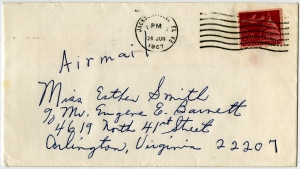 PM
26 JUN
1967
Airmail
Miss Esther Smith
c/o Mr. Eugene E. Barnett
4619 North 41st Street
Arlington, Virginia 22207